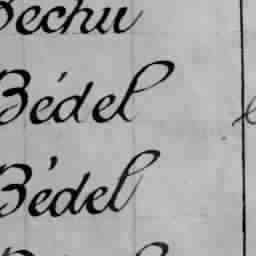 Béchu
Bédel
Bédel